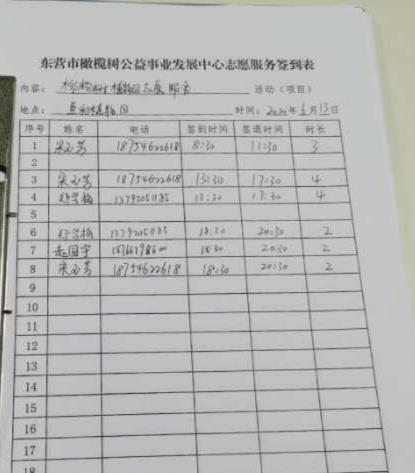 东营市橄榄树公益事业发展中心志愿服务签到表
内容： 植物园志愿服务 活动（项目）
地点： 植物园 时间：2020年6月13日
序号 姓名 电话 签到时间 签退时间 时长
1 宋玉芳 18754622618 8:30 11:30 3
2
3 宋玉芳 18754622618 13:30 17:30 4
4 13792051185 13:30 17:30 4
5
6 13792051185 18:30 20:30 2
7 18:30 20:30 2
8 宋玉芳 18754622618 18:30 20:30 2
9
10
11
12
13
14
15
16
17
18